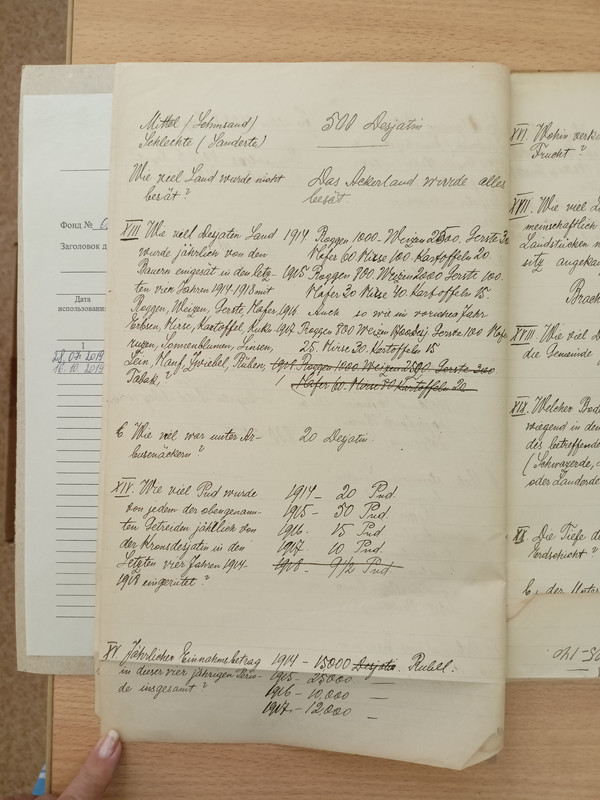 Фонд №
Заголовок д
Дата
использован
1
28.07.2019
16.10.2019
Mittel (Lehmsand) 500 Desjatin
Schlechte (Sanderte)
Wie viel Land wurde nicht Das Ackerland wurde alles
besät? besät
XIII Wie viel Desjaten Land 1914 Roggen 1000. Weizen 2500. Gerste
wurde jährlich von den Hafer 60 Hirse 100. Kartoffeln 20.
Bauern eingesät in den letz- 1915 Roggen 800. Weizen 2000 Gerste 100.
ten vier Jahren 1914-1918 mit Hafer 30 Hirse 40. Kartoffeln 15.
Roggen, Weizen, Gerste, Hafer, 1916 Auch so wie in voriches Jahr
Erbsen, Hirse, Kartoffel, Kuku- 1917 Roggen 800 Weizen Gerste 100 Hafer
ruzen, Sonnenblumen, Linsen, 25. Hirse 30. Kartoffeln 15
Lein, Hanf, Zwiebel, Rüben, 1918 Roggen 1000. Weizen 2500. Gerste 300
Tabak? Hafer 60. Hirse Kartoffeln 20
C. Wie viel war unter Ar- 20 Desjatin.
busenäckern?
XIV. Wie viel Pud wurde 1914 - 20 Pud.
von jedem der obengenann- 1915 - 50 Pud.
ten Getreiden jährlich von 1916. 15 Pud
der Kronsdesjatin in den 1917. 10 Pud.
Letzten vier Jahren 1914- 1918 - 9 1/2 Pud
1918 eingerütet?
XV Jährlicher Einnahmsbetrag 1914 - 15000 Desjatin Rubel.
in dieser vier jährigen Perio- 1915 - 25000 —
de insgesamt? 1916 - 10.000 —
1917. - 12.000 —
XVI. Wohin
Frucht?
XVII. Wie viel
meinschaftlich
Landstücken
sitz angekau
Brach
XVIII. Wie viel
die Gemeinde
XIX. Welcher Bod
wiegend in den
des betreffende
(Schwarzerde,
oder Sanderde
XX. Die Tiefe d
Erdschicht?
C. der Unter